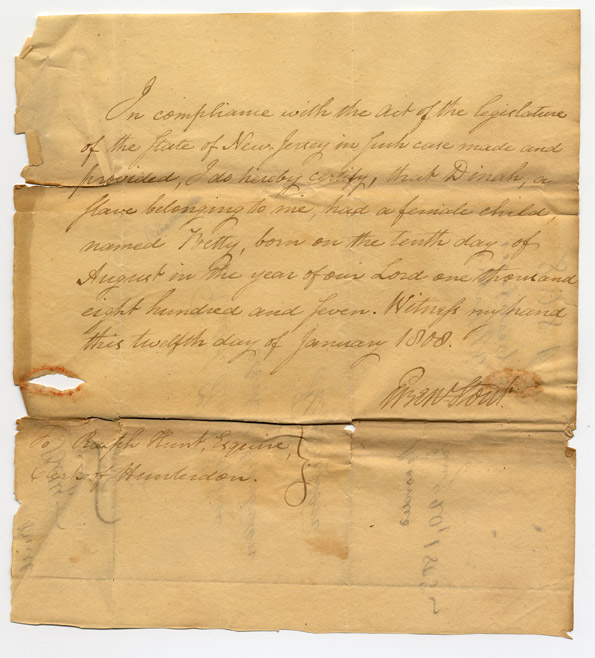 In compliance with the act of the legislature
of the State of New Jersey in such case made and
provided, I do hereby certify, that Dinah, a
slave belonging to me, had a female child,
named Betty, born on the tenth day of
August in the year of our Lord one thousand
eight hundred and seven. Witness my hand
this twelfth day of January 1808.
To Ralph Hunt, Esquire,
Clerk of Hunterdon.